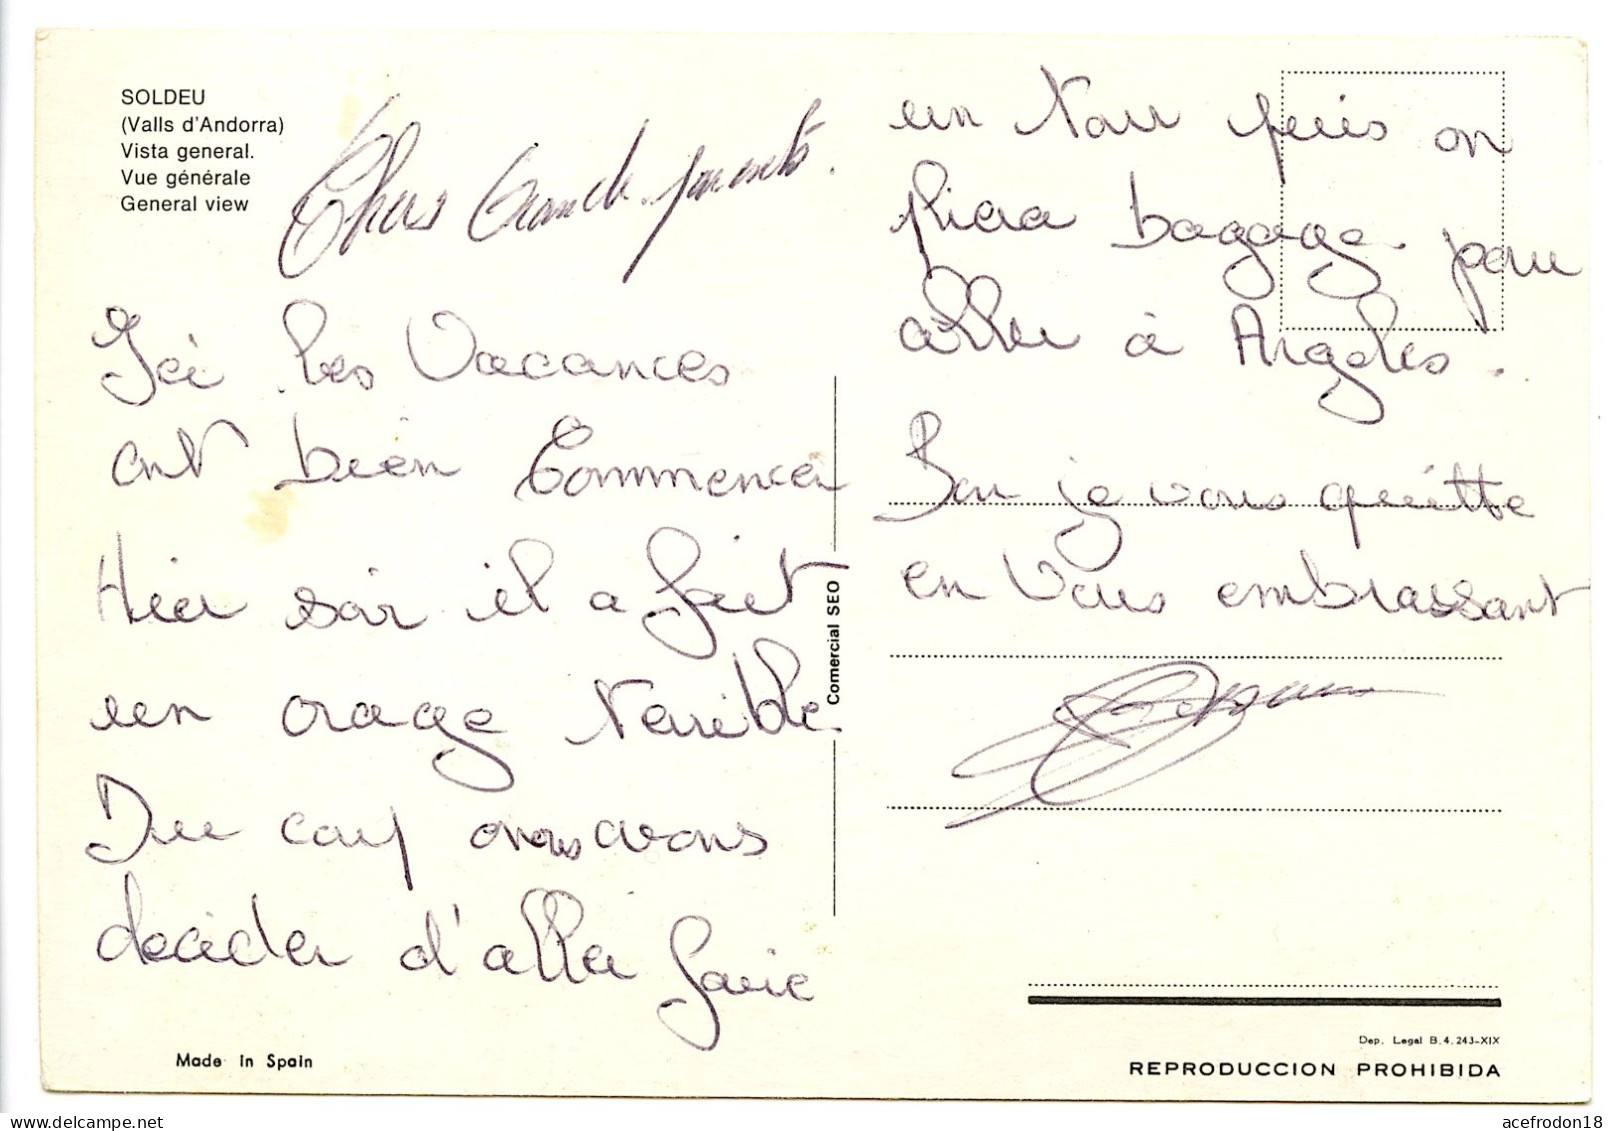 SOLDEU
(Valls d'Andorra)
Vista general.
Vue générale
General view
Chers Grands-parents.
Ici les Vacances
ont bien Commencer
Hier soir il a fait
un orage terrible
Du coup nous avons
decider d'aller faire
un tour puis on
pliera bagage pour
aller à Argeles.
Bon je vous quitte
en vous embrassant
Comercial SEO
Made in Spain
Dep. Legal B. 4.243-XIX
REPRODUCCION PROHIBIDA
acefrodon18